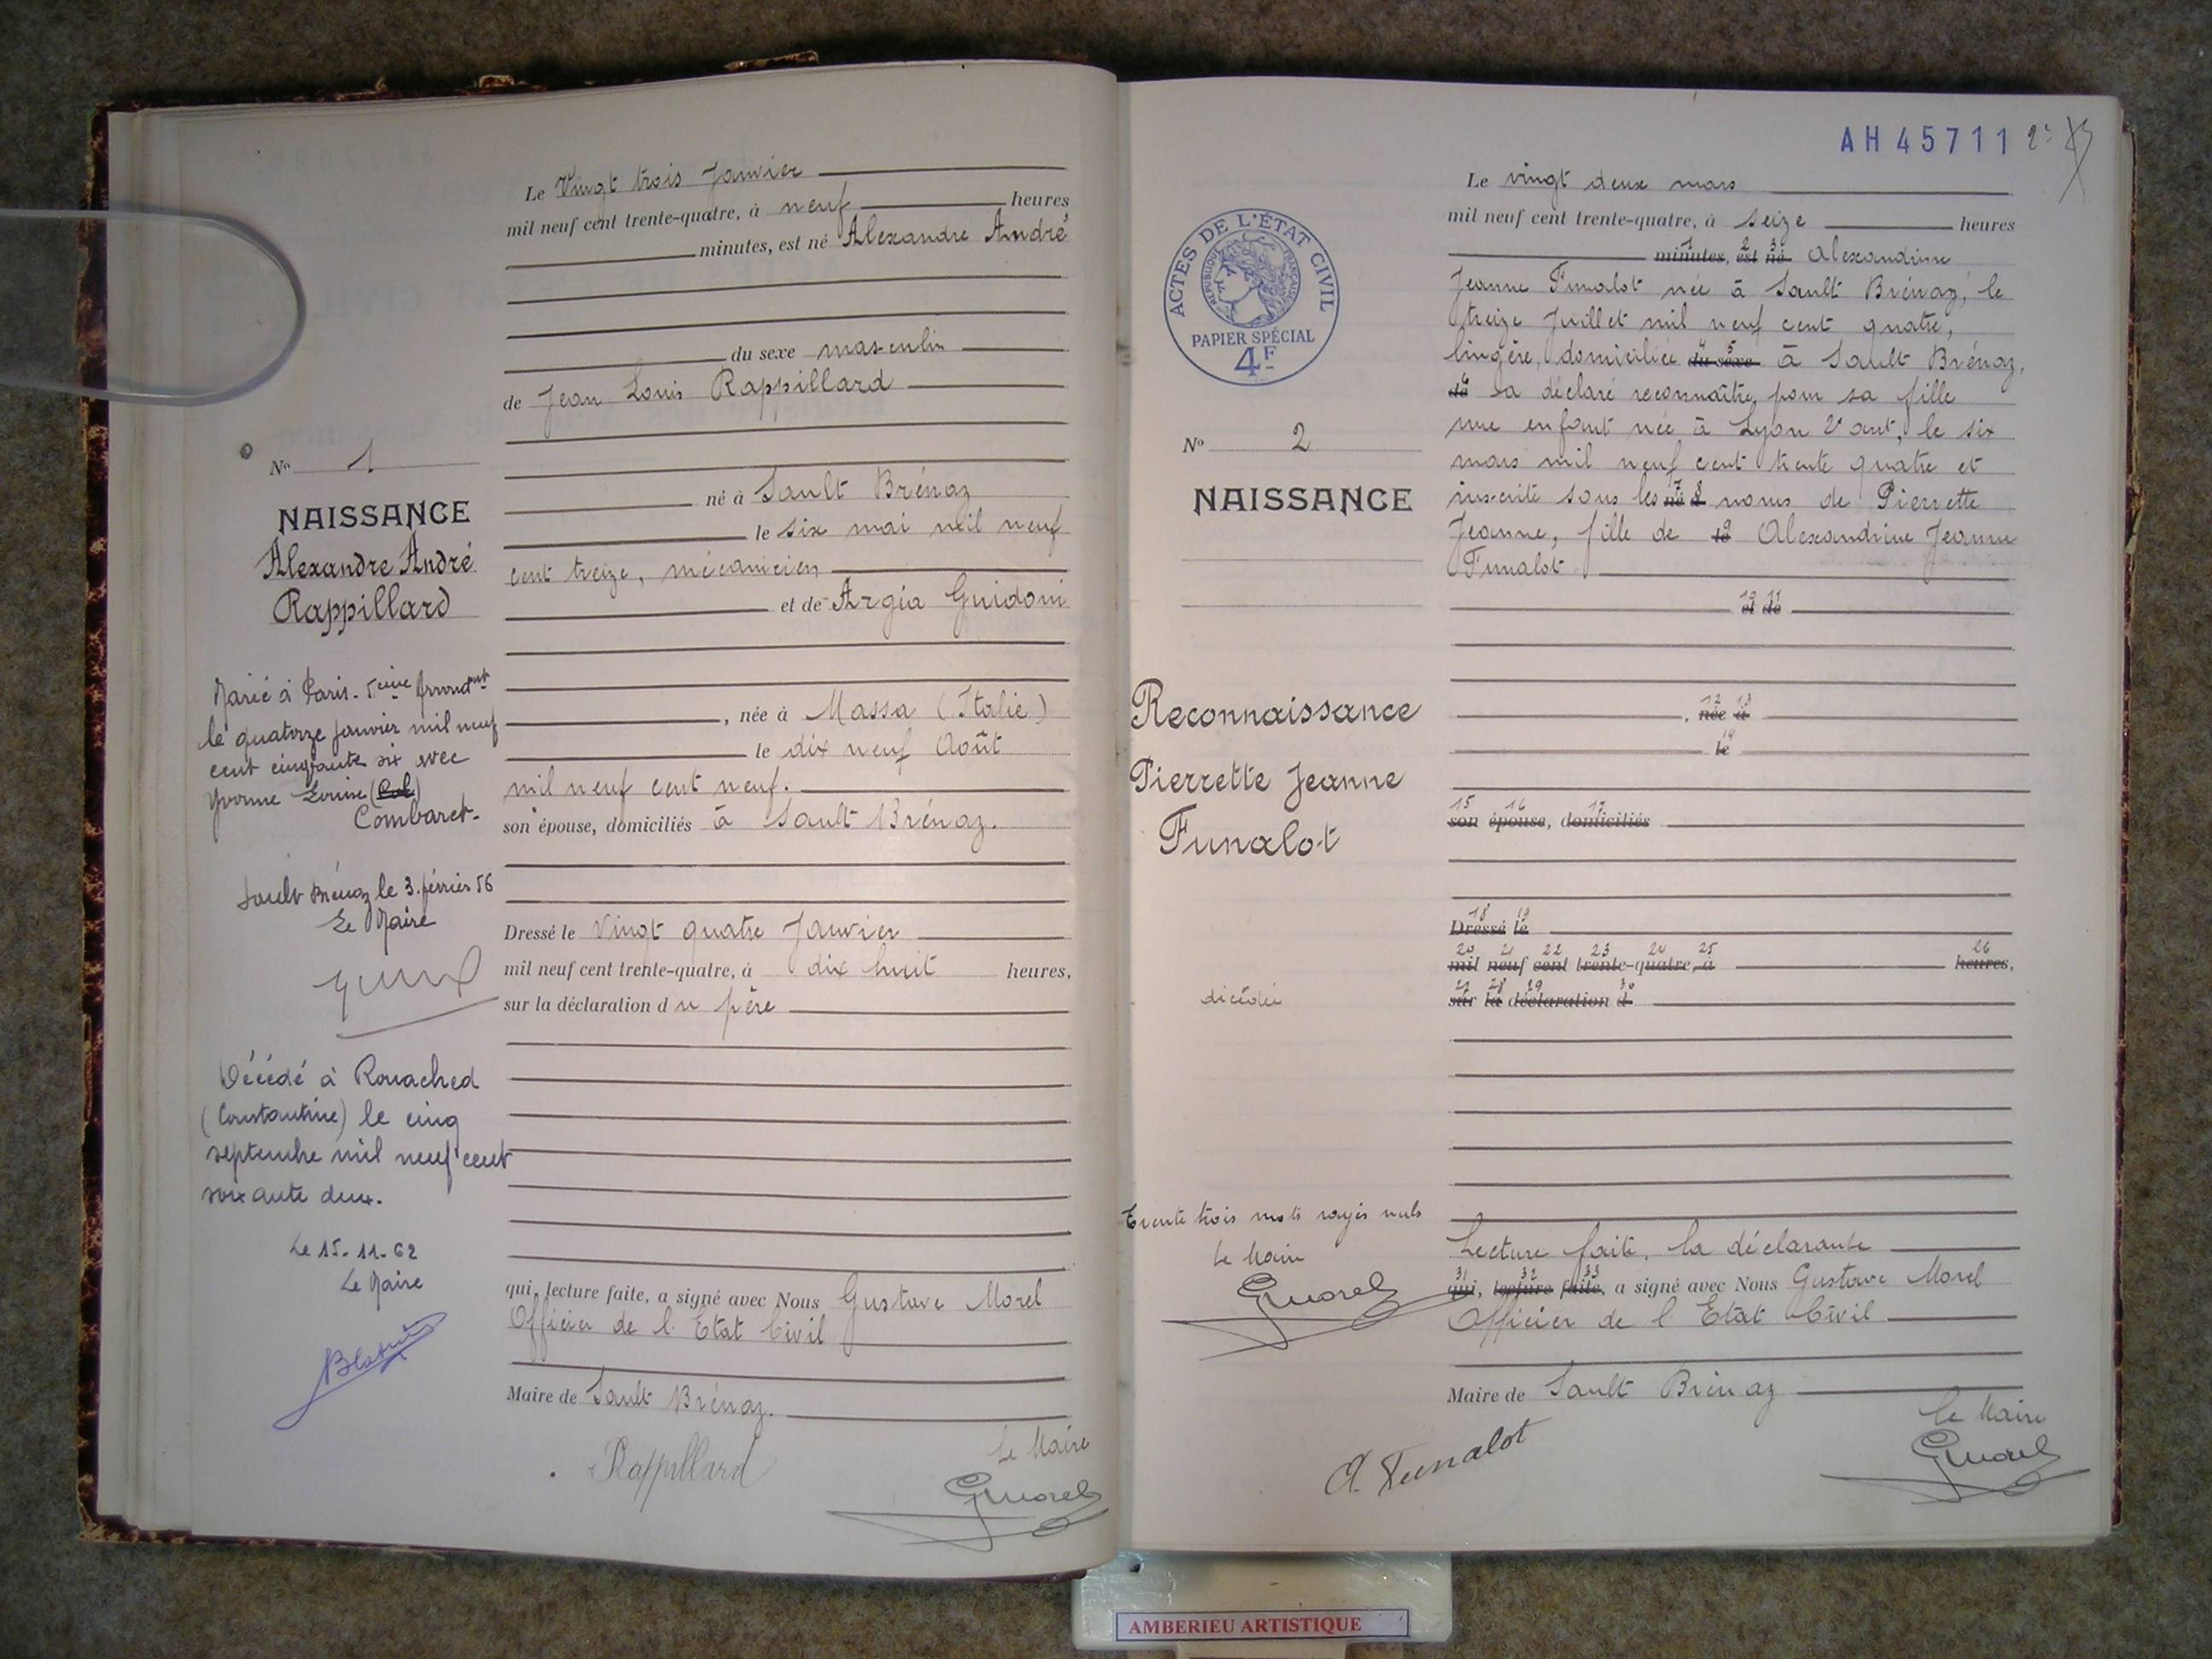 Le Vingt trois Janvier
mil neuf cent trente-quatre, à neuf heures
minutes, est né Alexandre André
du sexe masculin
de Jean Louis Rappillard
né à Sault Brénaz
le six mai mil neuf
cent treize, mécanicien
et de Argia Guidoni
, née à Massa (Italie)
le dix neuf Août
mil neuf cent neuf.
son épouse, domiciliés à Sault Brénaz.
Dressé le Vingt quatre Janvier
mil neuf cent trente-quatre, à dix huit heures,
sur la déclaration du père
qui, lecture faite, a signé avec Nous Gustave Morel
Officier de l'Etat Civil
Maire de Sault Brénaz.
Le Maire
Rappillard
GMorel
No 1
NAISSANCE
Alexandre André
Rappillard
Marié à Paris. 5eme Arrondnt
le quatorze janvier mil neuf
cent cinquante six avec
Yvonne Louise (Col)
Combaret.
Sault Brénaz le 3. février 56
Le Maire
Décédé à Rouached
(Constantine) le cinq
septembre mil neuf cent
soixante deux.
Le 15-11-62
Le Maire
AH 45711
Le vingt deux mars
mil neuf cent trente-quatre, à seize heures
1 2 3
minutes, est né Alexandrine
Jeanne Funalot née à Sault Brénaz, le
treize Juillet mil neuf cent quatre,
4 5
lingère, domiciliée du sexe à Sault Brénaz,
6
de a déclaré reconnaître pour sa fille
une enfant née à Lyon 2e arrt, le six
mars mil neuf cent trente quatre et
7 8
inscrite sous les né à noms de Pierrette
9
Jeanne, fille de le Alexandrine Jeanne
Funalot
10 11
et de
12 13
, née à
14
le
15 16 17
son épouse, domiciliés
18 19
Dressé le
20 21 22 23 24 25 26
mil neuf cent trente-quatre, à heures,
27 28 29 30
sur la déclaration d
Lecture faite, la déclarante
31 32 33
qui, lecture faite, a signé avec Nous Gustave Morel
Officier de l'Etat Civil
Maire de Sault Brénaz
Le Maire
A. Funalot
GMorel
ACTES DE L'ÉTAT CIVIL
RÉPUBLIQUE FRANÇAISE
PAPIER SPÉCIAL
4F
No 2
NAISSANCE
Reconnaissance
Pierrette Jeanne
Funalot
décédée
Trente trois mots rayés nuls
Le Maire
GMorel
AMBERIEU ARTISTIQUE